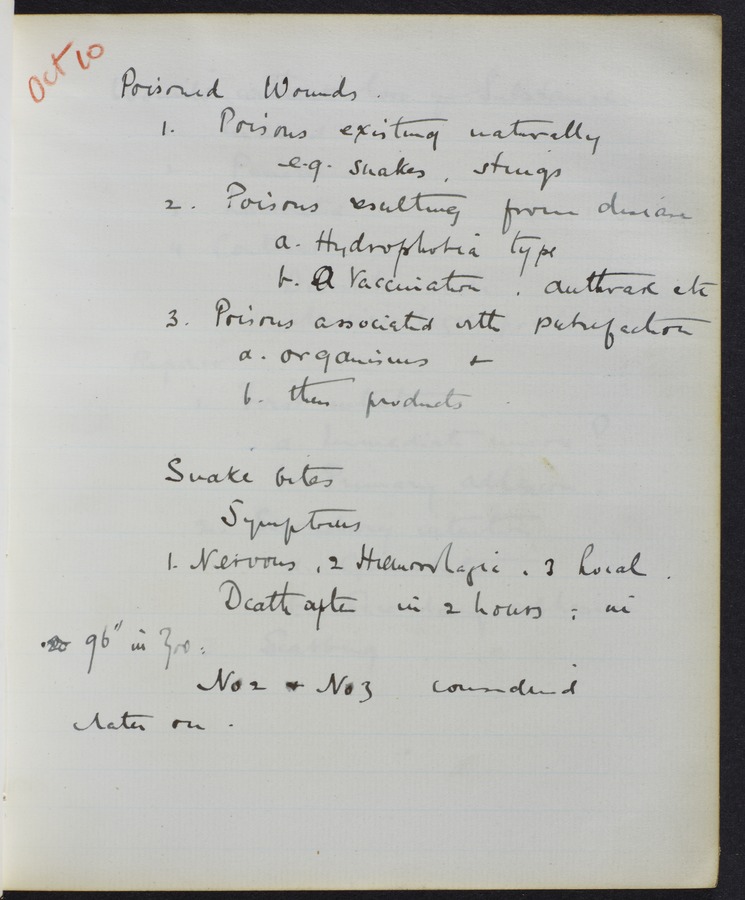 Oct 10
Poisoned Wounds.
1. Poisons existing naturally
e.g. snakes, stings
2. Poisons resulting from disease
a. Hydrophobia type
b. Vaccination, anthrax etc
3. Poisons associated with putrefaction
a. organisms +
b. their products.
Snake bites
Symptoms
1. Nervous, 2 Hæmorrhagic, 3 Local.
Death after in 2 hours; in
96" in
No 2 + No 3 considered
later on.